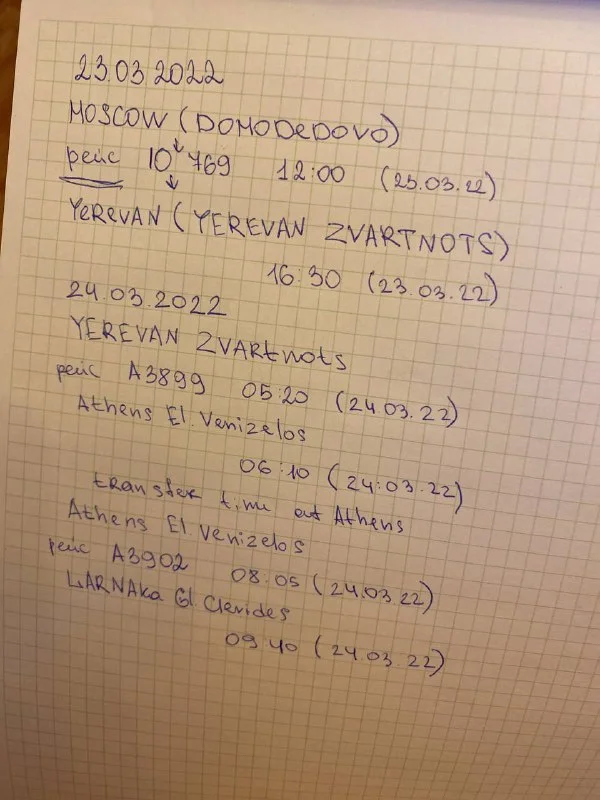 23.03.2022
MOSCOW (DOMODEDOVO)
рейс 10 769 12:00 (23.03.22)
YEREVAN (YEREVAN ZVARTNOTS)
16:30 (23.03.22)
24.03.2022
YEREVAN ZVARtnots
рейс A3899 05:20 (24.03.22)
Athens El. Venizelos
06:10 (24:03.22)
transfer time at Athens
Athens El Venizelos
рейс A3902 08:05 (24.03.22)
LARNAKa Gl. Clerides
09:40 (24.03.22)